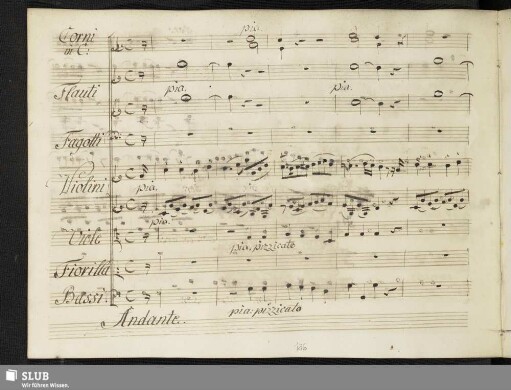 Corni
in C.
pia.
Flauti
pia.
pia.
Fagotti
Violini
pia.
pia.
Viole
pia. pizzicato
Fiorilla
Bassi.
pia: pizzicato
Andante.
SLUB
Wir führen Wissen.